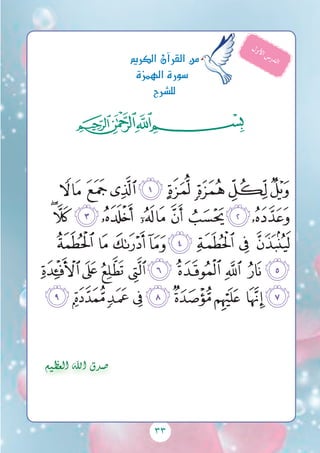 الدرس الأول
من القرآن الكريم
سورة الهمزة
للشرح
بِسْمِ ٱللَّهِ ٱلرَّحْمَٰنِ ٱلرَّحِيمِ
وَيْلٌ لِّكُلِّ هُمَزَةٍ لُّمَزَةٍ ١ ٱلَّذِى جَمَعَ مَالًا
وَعَدَّدَهُۥ ٢ يَحْسَبُ أَنَّ مَالَهُۥٓ أَخْلَدَهُۥ ٣ كَلَّا ۖ
لَيُنۢبَذَنَّ فِى ٱلْحُطَمَةِ ٤ وَمَآ أَدْرَىٰكَ مَا ٱلْحُطَمَةُ
٥ نَارُ ٱللَّهِ ٱلْمُوقَدَةُ ٦ ٱلَّتِى تَطَّلِعُ عَلَى ٱلْأَفْـِٔدَةِ
٧ إِنَّهَا عَلَيْهِم مُّؤْصَدَةٌ ٨ فِى عَمَدٍ مُّمَدَّدَةٍۭ ٩
صدق الله العظيم
٣٣